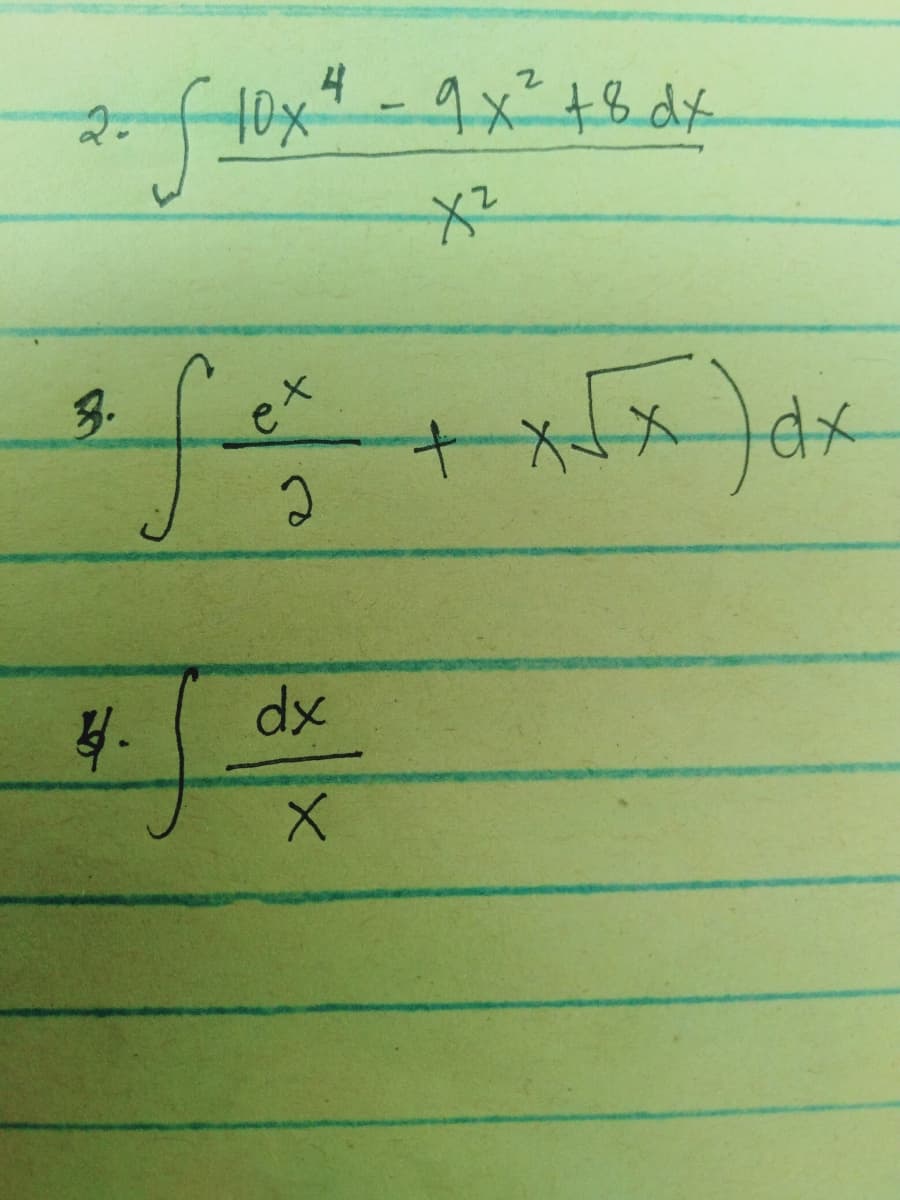 2. ∫ 10x⁴ - 9x² +8 dx
x²
3. ∫ eˣ/2 + x√x ) dx
4. ∫ dx
x